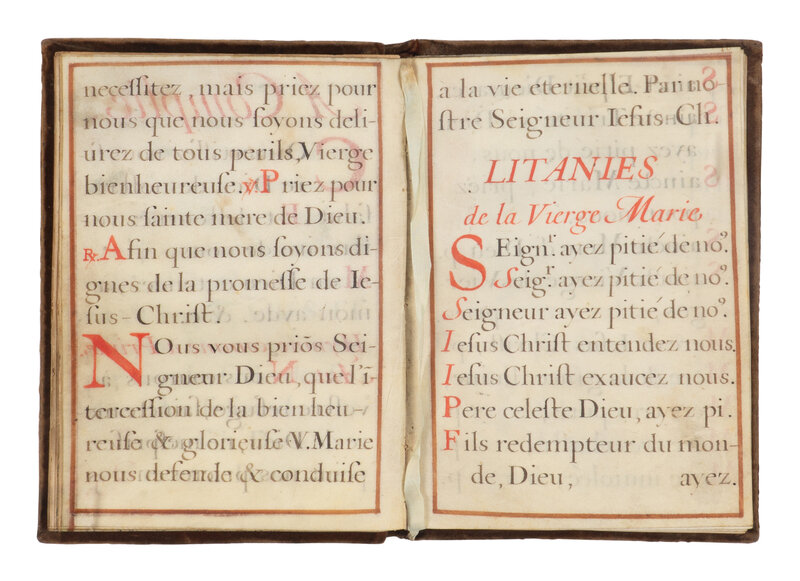 neceſſitez, mais priez pour
nous que nous ſoyons deli-
urez de tous perils, Vierge
bienheureuſe. ℣. Priez pour
nous ſainte mere de Dieu.
℟. Afin que nous ſoyons di-
gnes de la promeſſe de Ie-
ſus-Chriſt.
NOus vous priõs Sei-
gneur Dieu, que l'ĩ-
terceſſion de la bien heu-
reuſe & glorieuſe V. Marie
nous defende & conduiſe
a la vie eternelle. Par no-
ſtre Seigneur Ieſus-Ch.
LITANIES
de la Vierge Marie
SEignr. ayez pitié de no9.
Seigr. ayez pitié de no9.
Seigneur ayez pitié de no9.
Ieſus Chriſt entendez nous.
Ieſus Chriſt exaucez nous.
Pere celeſte Dieu, ayez pi.
Fils redempteur du mon-
de, Dieu, ayez.